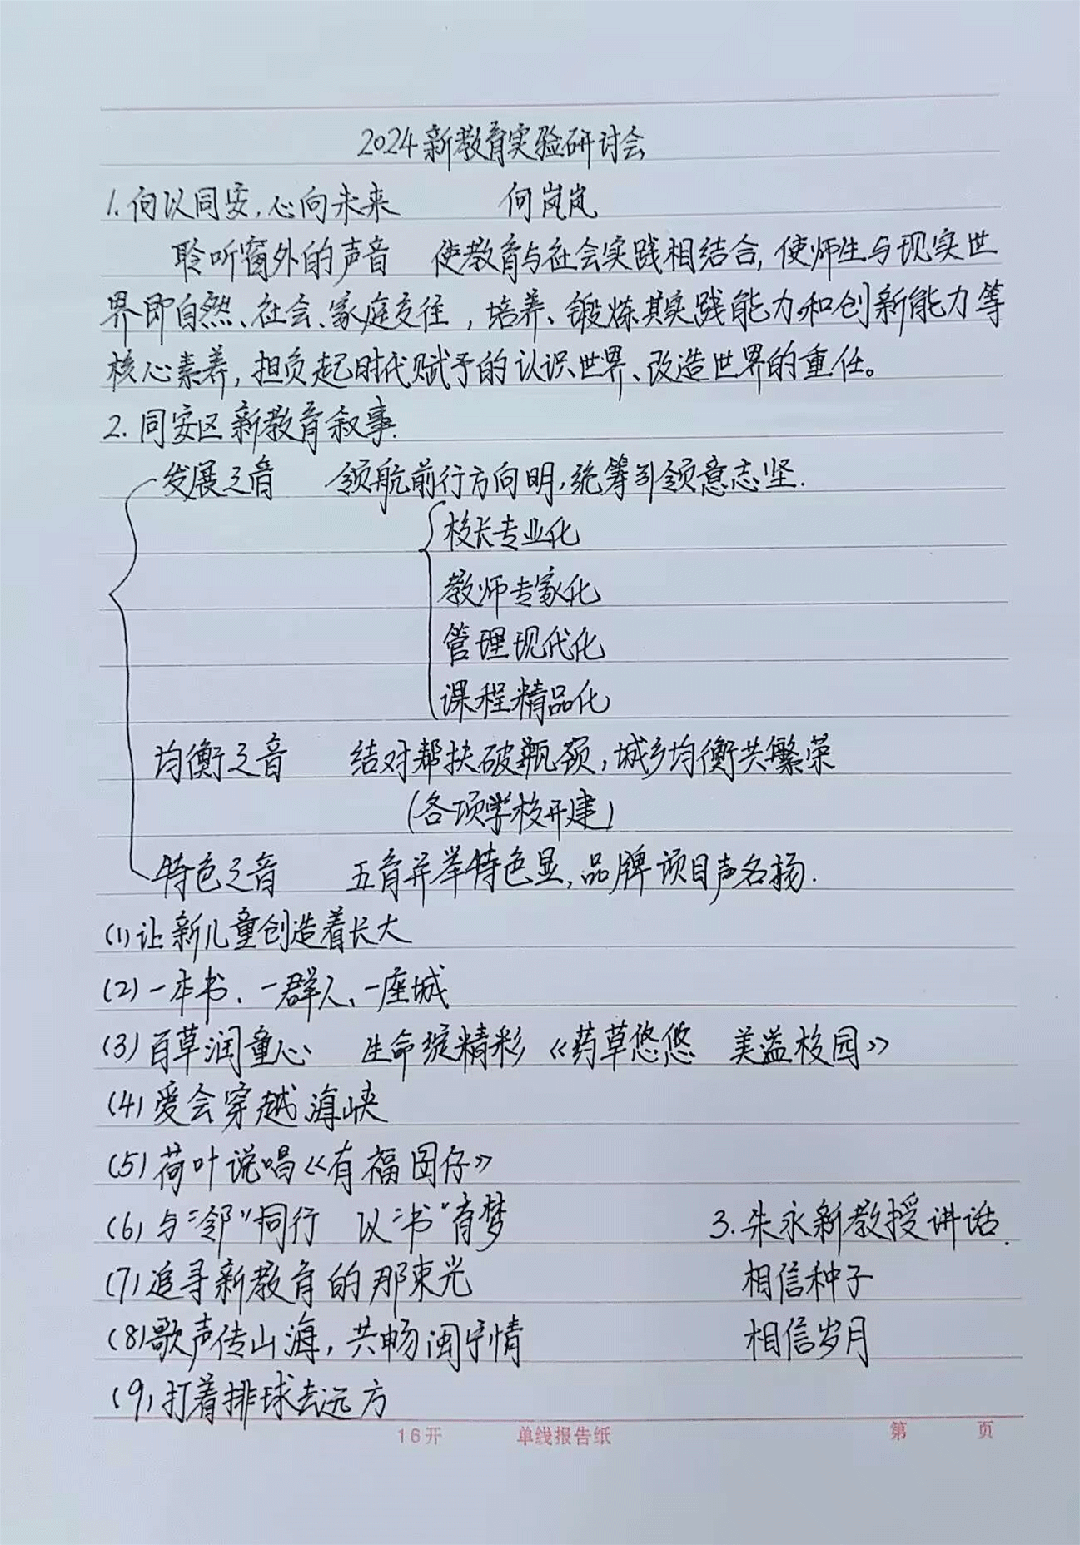 2024新教育实验研讨会
1. 何以同安,心向未来 何岚岚
聆听窗外的声音 使教育与社会实践相结合,使师生与现实世
界即自然、社会、家庭交往,培养、锻炼其实践能力和创新能力等
核心素养,担负起时代赋予的认识世界、改造世界的重任。
2. 同安区新教育叙事.
发展之音 领航前行方向明,统筹引领意志坚.
校长专业化
教师专家化
管理现代化
课程精品化
均衡之音 结对帮扶破瓶颈,城乡均衡共繁荣
(各项学校开建)
特色之音 五育并举特色显,品牌项目声名扬.
(1)让新儿童创造着长大
(2)一本书、一群人、一座城
(3)百草润童心 生命绽精彩《药草悠悠 美溢校园》
(4)爱会穿越海峡
(5)荷叶说唱《有福囝仔》
(6)与“邻”同行 以“书”育梦
3.朱永新教授讲话.
(7)追寻新教育的那束光
相信种子
(8)歌声传山海,共畅闽宁情
相信岁月
(9)打着排球去远方
16开 单线报告纸 第 页